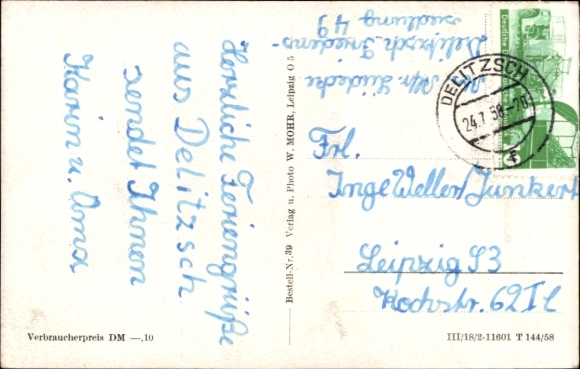 Herzliche Feriengrüße
aus Delitzsch
sendet Ihnen
Karin u. Oma
Delitzsch, Friedens-
siedlung 49
Deutsche
DELITZSCH
24.7.58
f
Frl.
Inge Weller/Junkert
Leipzig S3
Kochstr. 62 II
Bestell-Nr. 39 Verlag u. Photo W. MOHR, Leipzig O 5
Verbraucherpreis DM —,10
III/18/2-11601 T 144/58